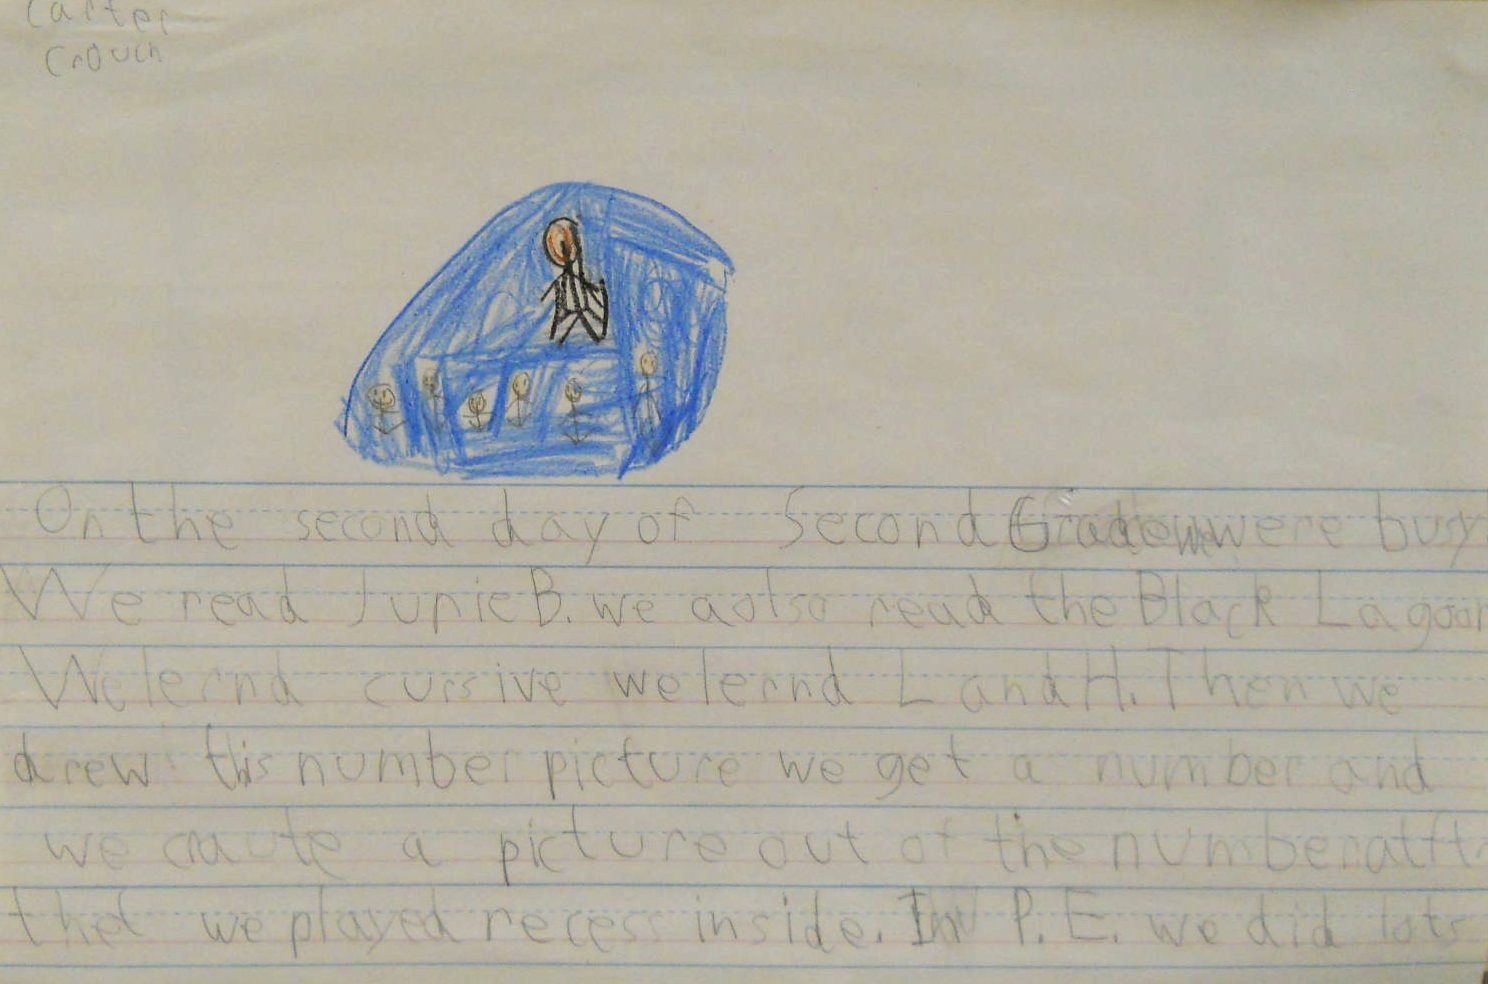 Carter
Crouch
On the second day of Second Grade we were busy
We read Junie B. we aolso read the Black Lagoon
We lernd cursive we lernd L and H. Then we
drew this number picture we get a number and
we craute a picture out of the number atft
thet we played recess inside. In P.E. we did lots